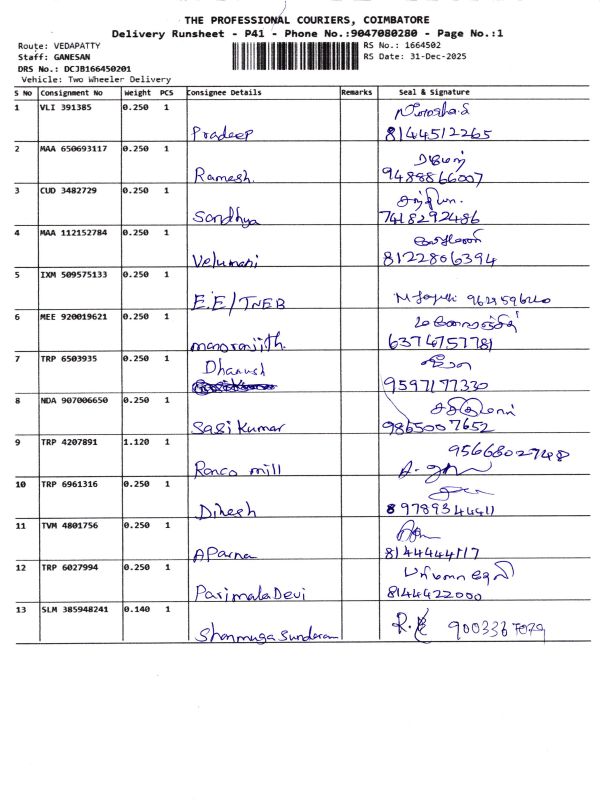 THE PROFESSIONAL COURIERS, COIMBATORE
Delivery Runsheet - P41 - Phone No.:9047080280 - Page No.:1
Route: VEDAPATTY
RS No.: 1664502
Staff: GANESAN
RS Date: 31-Dec-2025
DRS No.: DCJB166450201
Vehicle: Two Wheeler Delivery
S No Consignment No Weight PCS Consignee Details Remarks Seal & Signature
1 VLI 391385 0.250 1
Pradeep 8144512265
2 MAA 650693117 0.250 1 ரமேஷ்
Ramesh. 9488866007
3 CUD 3482729 0.250 1
Sandhya 7418292486
4 MAA 112152784 0.250 1
Velumani 8122806394
5 IXM 509575133 0.250 1
E.E/TNEB
6 MEE 920019621 0.250 1
manoranjith. 6374757781
7 TRP 6503935 0.250 1 Dhanush
9597177330
8 NDA 907006650 0.250 1 சசிகுமார்
Sasi Kumar 9865007652
9 TRP 4207891 1.120 1 9566802748
Ronco mill
10 TRP 6961316 0.250 1
Dinesh 89789344411
11 TVM 4801756 0.250 1
APArna 8144444117
12 TRP 6027994 0.250 1
Parimala Devi 8144422000
13 SLM 385948241 0.140 1
Shanmuga Sundaram 9003367079